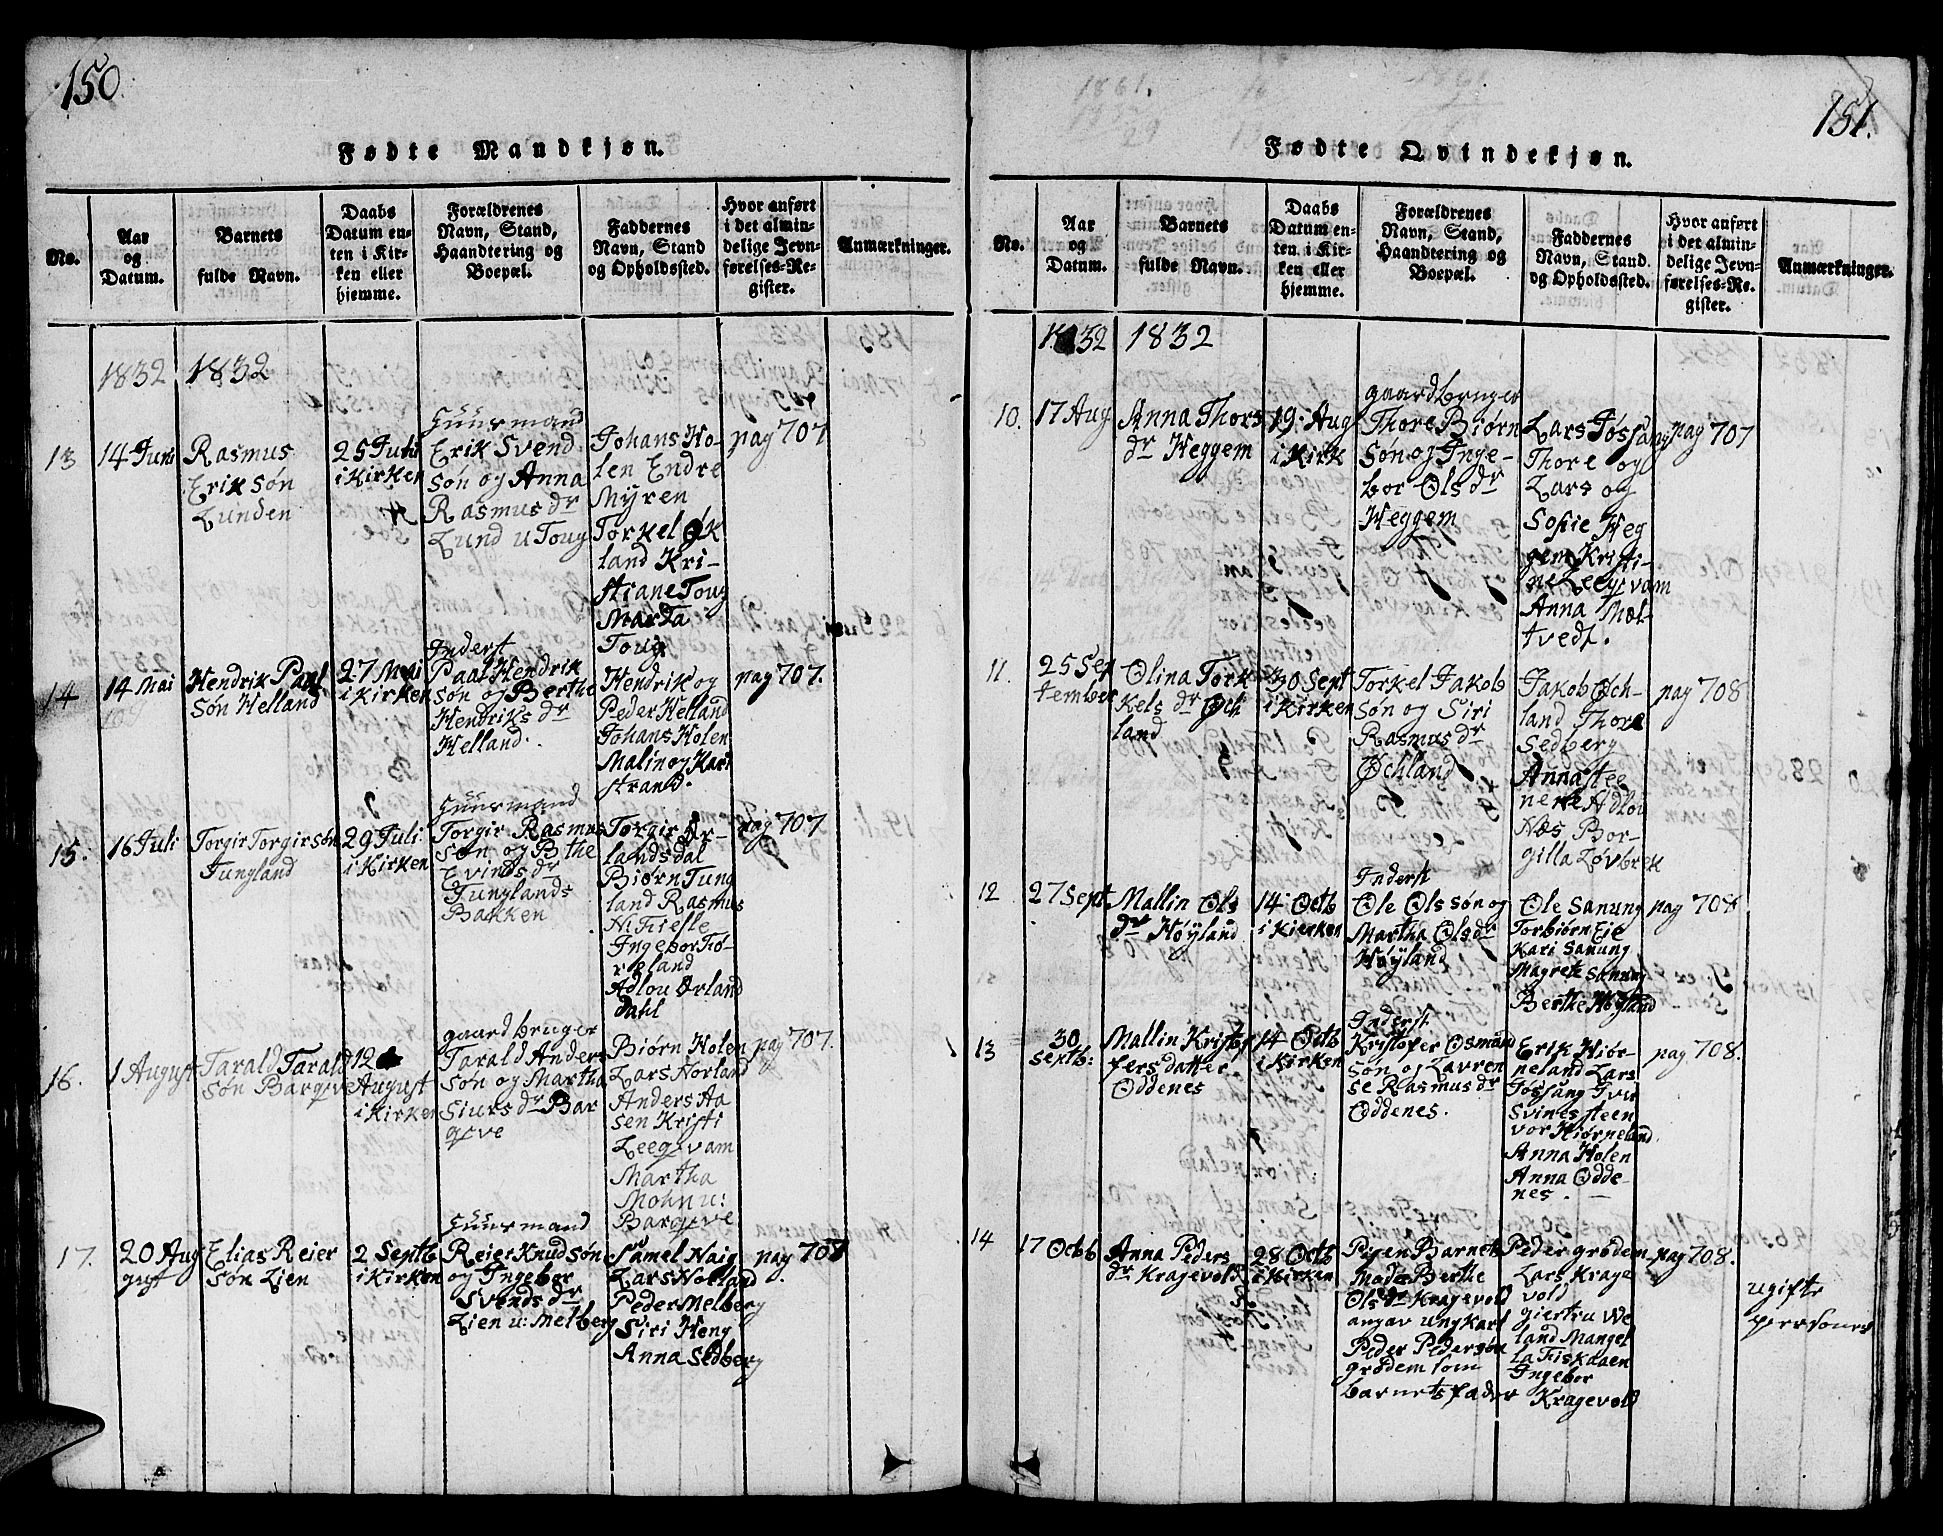 150
Fødte Mandkjøn.
No.
Aar
og
Datum.
Barnets
fulde Navn.
Daabs
Datum en-
ten i Kir-
ken eller
hjemme.
Forældrenes
Navn, Stand,
Haandtering og
Boepæl.
Faddernes
Navn, Stand
og Opholdssted.
Hvor anført
i det almin-
delige Jevn-
førelses-Re-
gister.
Anmærkninger.
1832
1832
13
14 Juni
Rasmus
Erik søn
Lunden
25 Juli
i Kirken
Huusmand
Erik Svend
søn og Anna
Rasmus dr
Lund u Toug
Johans Ho-
len Endre
Myren
Torkel Øk
land Kri-
stiane Toug
Marta
Toug
pag 707
14
14 Mai
Hendrik Paal
Søn Helland
27 Mai
i Kirken
Inderst
Paal Hendrik
søn og Berthe
Hendriks dr
Helland.
Hendrik og
Peder Helland
Johans Holen
Malin og Kari
strand.
pag 707.
15.
16 Juli
Torgir Torgirsøn
Tungland
29 Juli
i Kirken
Huusmand
Torgir Rasmus
søn og Bthe
Evinds dr
Tunglands
Bakken
Torgir Ør-
landsdal
Biørn Tung
land Rasmus
N Fiefle
Ingebor Fø-
reland
Adlou Ørland
dahl
pag 707
16.
1 August
Tarald Tarald
søn Bargeve
12
August
i Kirken
gaardbruger
Tarald Anders
søn og Martha
Siurs dr Bar
geve
Biørn Holen
Lars Norland
Anders Aa
sen Kristi
Leeqvam
Martha
Mohn u:
Bargeve
pag 707.
17.
20 Aug
gust
Elias Reier
søn Lien
2 Septb
i Kirken
Huusmand
Reier Knudsøn
og Ingebor
Svends dr
Lien u: Melberg
Samel Haig
Lars Hølland
Peder Melberg
Siri Heng
Anna Sedberg
pag 708
151.
Fødte Qvindekjøn.
No.
Aar
og
Datum.
Barnets
fulde Navn.
Daabs
Datum en-
ten i Kir-
ken eller
hjemme.
Forældrenes
Navn, Stand,
Haandtering og
Boepæl.
Faddernes
Navn, Stand
og Opholdssted.
Hvor anført
i det almin-
delige Jevn-
førelses-Re-
gister.
Anmærkninger.
1832
1832
10.
17 Aug
Anna Thors
dr Heggem
19. Aug
i Kirk
gaardbruger
Thore Biørn
søn og Inge-
bor Ols dr
Heggem
Lars Jøssang
Thore og
Lars og
Sofie Heg
gem Kristi-
ne Leeqvam
Anna Mæl-
tvedt.
pag 707
11.
25 Sep
tember
Olina Tor
Kels dr Øch
land
30 Sept
i Kirken
Torkel Jakob
søn og Siri
Rasmus dr
Øchland
Jakob Øch-
land Thore
Sedberg
Anna stee
nene Adlou
Næs Bor-
gilla Løvbrek
pag 708
12
27 Sept
Mallin Ols
dr Høyland
14 Octb
i Kierken
Inderst
Ole Olssøn og
Martha Olsdr
Høyland
Ole Sanung
Torbiørn Eie
Kari Sanung
Magrete Sanung
Berthe Høyland
pag 708
13
30
Septb:
Mallin Kristo
fersdatter
Oddenes
14 Octb
i Kirken
Inderst
Kristofer Osmund
søn og Lavren
se Rasmus dr
Oddenes.
Erik Hiør-
neland Lars
Jøssang Ivir
Svines steen
vor Hiørneland
Anna Holen
Anna Odde-
nes.
pag 708.
14
17 Octb
Anna Peders
dr Kragevold
28 Octb
i Kirken
Pigen Barnets
Moder Berthe
Ols dr Kragevold
angav ungkarl
Peder Pedersøn
grødem som
barnets fader
Peder grødem
Lars Krage
vold
giertru We
land Mangel
la Fiskaaen
Ingebor
Kragevold
pag 708.
ugifte
personer